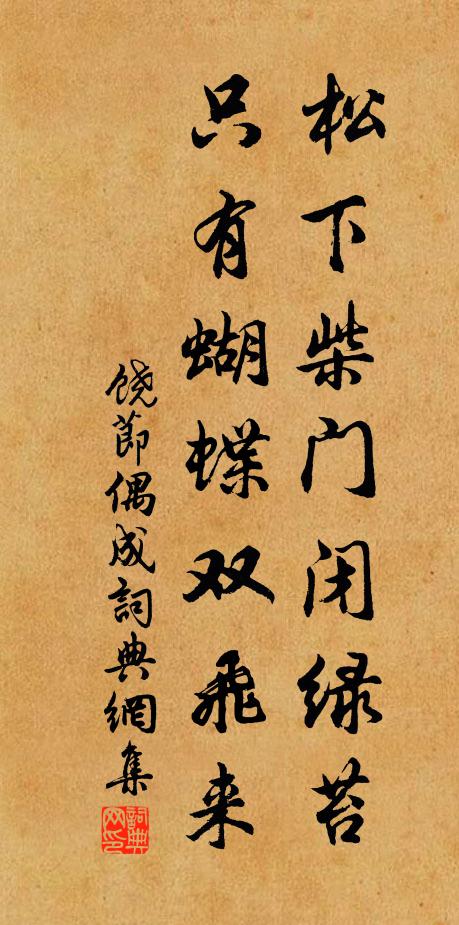 松下柴门闭绿苔
只有蝴蝶双飞来
饶節偶成詞典網集
詞典网印